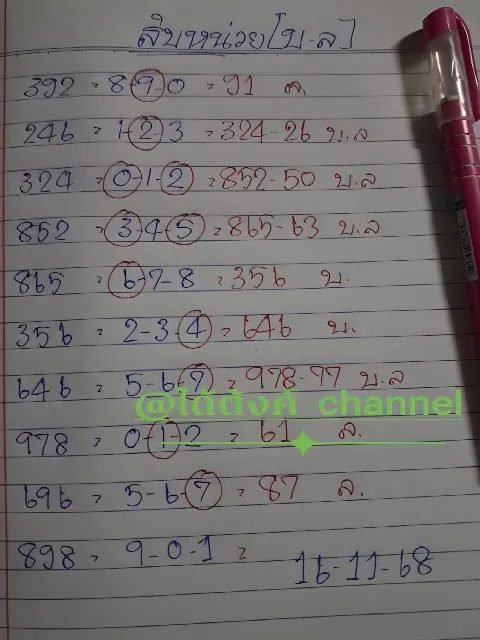 สิบหน่วย[บ-ล]
392 = 8-9-0 = 91 ล.
246 = 1-2-3 = 324-26 บ.ล
324 = 0-1-2 = 852-50 บ.ล
852 = 3-4-5 = 865-63 บ.ล
865 6-7-8 = 356 บ.
356 = 2-3-4 = 646 บ.
646 = 5-6-7 = 978-77 บ.ล
@ไต้ตังค์ channel
978 = 0-1-2 = 61 ล.
696 = 5-6-7 = 87 ล.
898 = 9-0-1 =
16-11-68